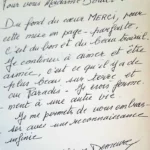 Pour vous Madame
Du fond du cœur MERCI, pour
cette mise en page - parfaite.
C'est du bon et du beau travail.
Continuez à aimer et être
aimée, c'est ce qu'il y a de
plus beau sur terre et
au Paradis. Je crois ferme-
ment à une autre vie
Je me permets de vous embras-
ser avec une reconnaissance
infinie